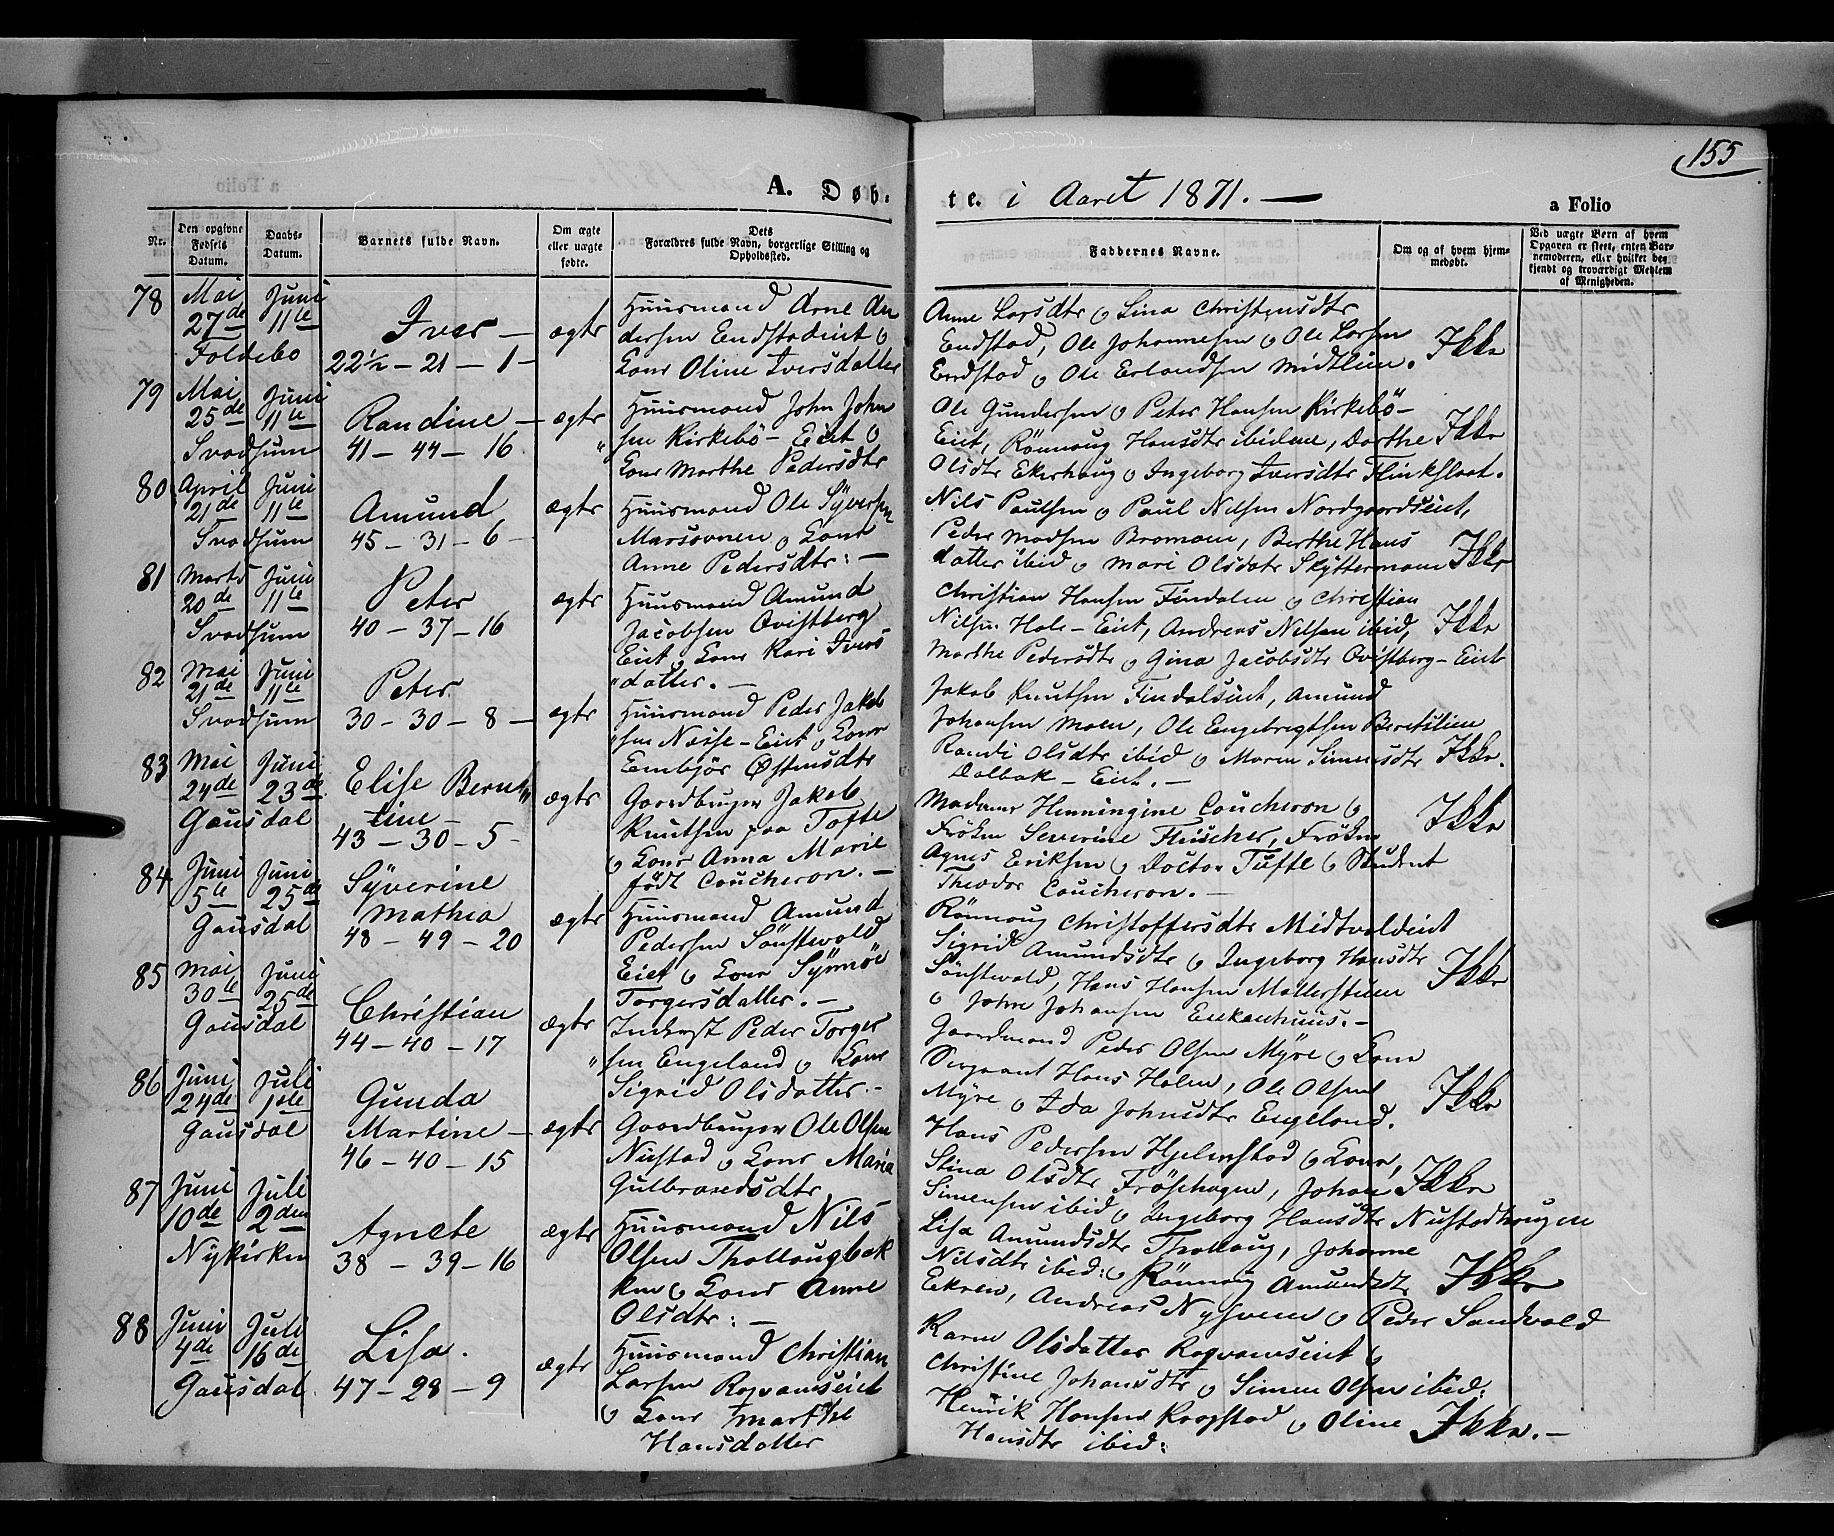 155
A. Døb-
te. i Aaret 1871. —
a Folio
Nr.
Den opgivne Fødsels Datum.
Daabs-Datum.
Barnets fulde Navn.
Om ægte eller uægte fødte.
Dets Forældres fulde Navn, borgerlige Stilling og Opholdssted.
Faddernes Navne.
Om og af hvem hjemmedøbt.
Ved uægte Børn af hvem Opgaven er skeet, enten Barnemoderen, eller hvilket bekjendt og troværdigt Medlem af Menigheden.
78
Mai 27de
Juni 11te
Foldebo
Iver —
22½ — 21 — 1 —
ægte
Huusmand Arne An
dersen Endstadeiet o
Kone Oline Iversdatter
Anne Larsdtr o Lina Christensdtr
Endstad, Ole Johannesen o Ole Larsen
Endstad o Ole Erlandsen Midtlien.
Ikke
79
Mai 25de
Juni 11te
Svadsum
Randine —
41 — 44 — 16
ægte
Huusmand John John
"sen Kirkebö — Eiet o
Kone Marthe Pedersdtr
Ole Gundersen o Peter Hansen Kirkebö —
Eiet, Rönnaug Hansdtr ibidem, Dorthe
Olsdtr Ekerhaug o Ingeborg Iversdtr Flinksloat.
Ikke
80
April 21de
Juni 11te
Svadsum
Amund
45 — 31 — 6 —
ægte
Huusmand Ole Syversen
Marsovnen o Kone
Anne Pedersdtr: —
Nils Paulsen o Paul Nilsen Nordgaardseiet,
Peder Madsen Bromoen, Berthe Hans
datter ibid o Mari Olsdatr Skyttermoen
Ikke
81
Marts 20de
Juni 11te
Svadsum
Peter
40 — 37 — 16
ægte
Huusmand Amund
Jacobsen Qvistberg
Eiet o Kone Kari Ivers
"datter. —
Christian Hansen Findalen o Christian
Nilsen Hole — Eiet, Andreas Nilsen ibid,
Marthe Pedersdtr o Gina Jacobsdtr Qvistberg — Eiet
Ikke
82
Mai 21de
Juni 11te
Svadsum
Peter
30 — 30 — 8 —
ægte
Huusmand Peder Jakob
"sen Næsse — Eiet o Kone
Embjör Östensdtr
Jakob Knutsen Findalseiet, Amund
Johansen Moen, Ole Engebregtsen Beretslien
Randi Olsdtr ibid o Maren Simensdtr
Dalbak — Eiet. —
Ikke.
83
Mai 24de
Juni 23de
Gausdal
Elise Bernt"
tine —
43 — 30 — 5 —
ægte
Gaardbruger Jakob
Knutsen paa Tofte
o Kone Anna Marie
født Coucheron. —
Madame Henningine Coucheron o
Fröken Severine Fleischer, Fröken
Agnes Eriksen o Doctor Tufte o Student
Theodor Coucheron. —
Ikke
84
Juni 5te
Juni 25de
Gausdal
Syverine
Mathea
48 — 49 — 20
ægte
Huusmand Amund
Pedersen Sönstevold
Eiet o Kone Synnöe
Torgersdatter. —
Rönnaug Christoffersdtr Midtvoldeiet
Sigrid Amundsdtr o Ingeborg Hansdtr
Sönstevold, Hans Hansen Mollerstuen
o John Johansen Enkenhuus. —
Ikke
85
Mai 30te
Juni 25de
Gausdal
Christian
44 — 40 — 17
ægte
Inderst Peder Torger
"sen Engeland o Kone
Sigrid Olsdatter. —
Gaardmand Peder Olsen Myre o Kone
Sergeant Hans Holen, Ole Olsen
Myre o Ida Johnsdtr Engeland.
Ikke
86
Juni 24de
Juli 1ste
Gausdal
Gunda
Martine —
46 — 40 — 15
ægte
Gaardbruger Ole Olsen
Nustad o Kone Maria
Gulbrandsdtr
Hans Pedersen Hjelmstad o Kone,
Stina Olsdtr Fröshagen, Johan
Simensen ibid o Ingeborg Hansdtr Nustadhaugen
Ikke
87
Juni 10de
Juli 2den
Nykirken
Agnete
38 — 39 — 16
ægte
Huusmand Nils
Olsen Thollaugbak
ken o Kone Anne
Olsdtr: —
Lisa Amundsdtr Thollaug, Johanne
Nilsdtr ibid: o Rönnaug Amundsdtr
Eikren, Andreas Nysveen o Peder Sandvold
Ikke
88
Juni 4de
Juli 16de
Gausdal.
Lisa.
47 — 28 — 9
ægte
Huusmand Christian
Larsen Rogvamseiet
o Kone Marthe
Hansdatter
Karen Olsdatter Rogvamseiet o
Christine Johansdtr o Simen Olsen ibid:
Henrik Hansen Kragstad o Oline
Hansdtr ibid:
Ikke. —